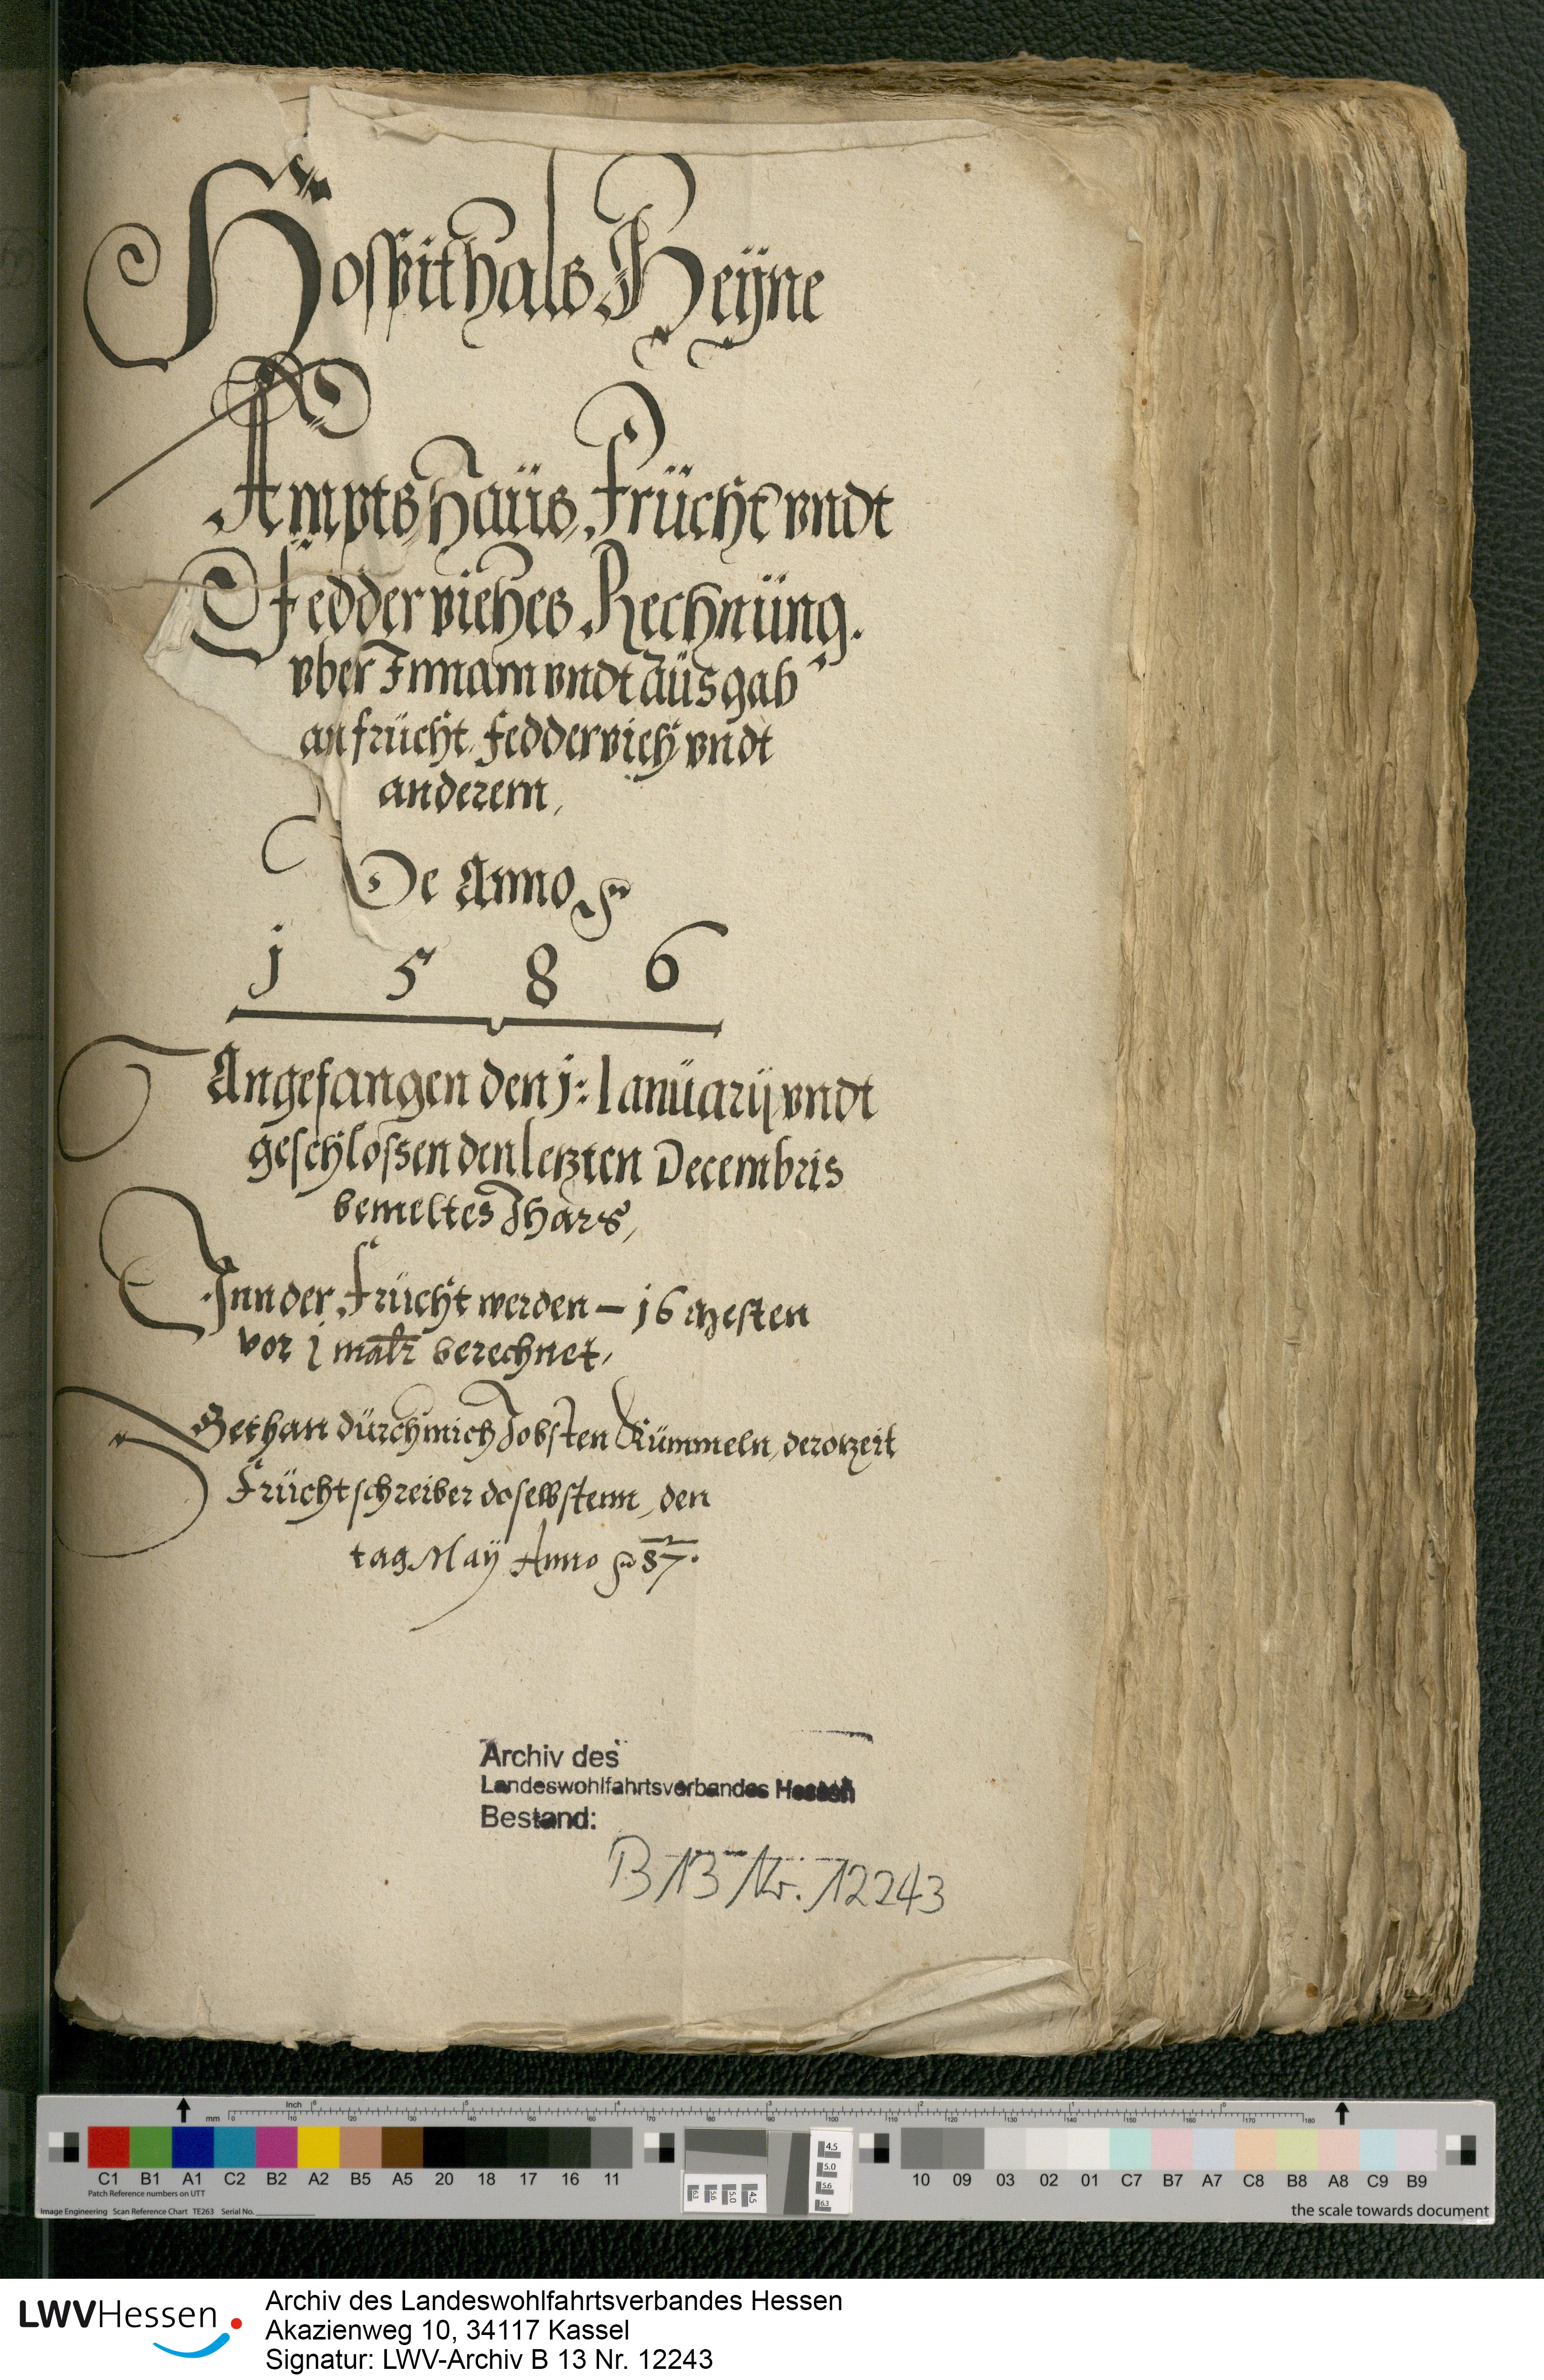 Hospithals Heÿne
Ampts Haüs, Frücht vndt
Fedder viehes Rechnüng.
vber Innam vndt aüsgab
an frücht fedder vieh vndt
anderem,
De Anno
1 5 8 6
Angefangen den j: Ianüarij vndt
geschlossen den letzten Decembris
bemeltes Jhars,
Inn der Frücht werden – 16 Mesten
vor j malr berechnet,
Gethan dürch mich Jobsten Kümmeln, derotzeit
Früchtschreiber doselbstenn, den
tag Maÿ Anno 87.
Archiv des
Landeswohlfahrtsverbandes Hessen
Bestand:
B 13 Nr. 12243
mm 0 10 20 30 40 50 60 70 80 90 100 110 120 130 140 150 160 170 180
Inch 6 5 4 3 2 1 0
C1 B1 A1 C2 B2 A2 B5 A5 20 18 17 16 11 10 09 03 02 01 C7 B7 A7 C8 B8 A8 C9 B9
6.3 5.6 5.0 4.5
4.5
5.0
5.6
6.3
Patch Reference numbers on UTT
Image Engineering Scan Reference Chart TE263 Serial No.
the scale towards document
LWVHessen
Archiv des Landeswohlfahrtsverbandes Hessen
Akazienweg 10, 34117 Kassel
Signatur: LWV-Archiv B 13 Nr. 12243